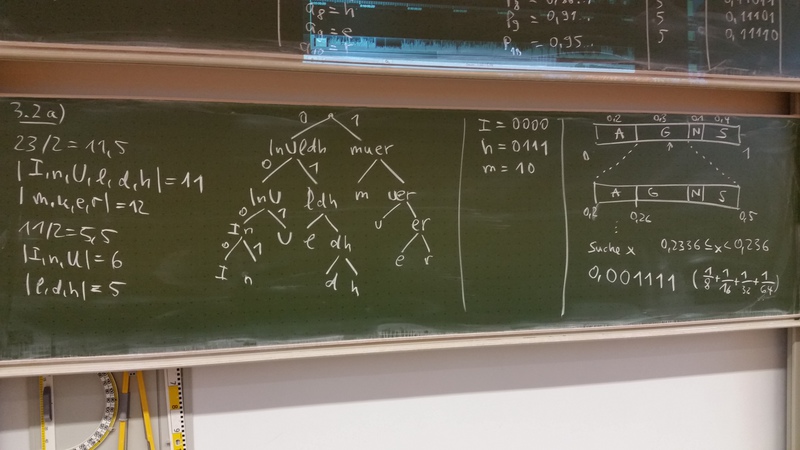 a₈ = h
P₉ = 0,91...
5
0,11101
P₁₀ = 0,95...
5
0,11110
3.2a)
23/2 = 11,5
|I,n,U,l,d,h| = 11
|m,u,e,r| = 12
11/2 = 5,5
|I,n,U| = 6
|l,d,h| = 5
0 1
InUldh muer
0 1
InU ldh m uer
0 1
In U l dh u er
0 1
I n d h e r
I = 0000
h = 0111
m = 10
0,2 0,3 0,1 0,4
A G N S
0 1
A G N S
0,2 0,26 0,5
⋮
Suche x 0,2336 ≤ x < 0,236
0,001111 (1/8 + 1/16 + 1/32 + 1/64)